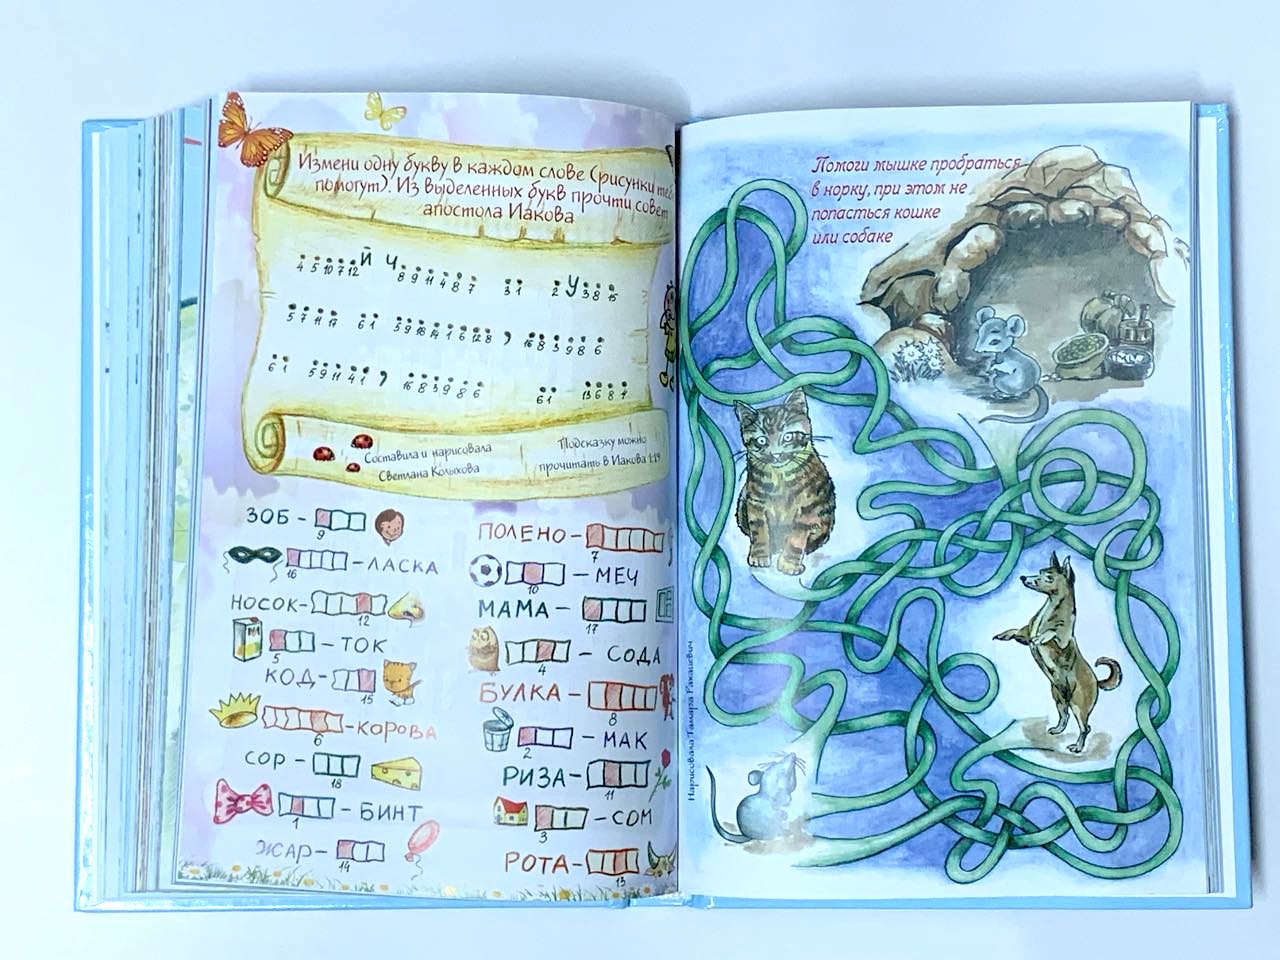 Измени одну букву в каждом слове (рисунки
помогут). Из выделенных букв прочти совет
апостола Иакова
Й Ч
4 5 10 7 12 8 9 11 4 8 7 3 1 2 У 3 8 15
5 7 11 17 6 1 5 9 18 14 1 6 12 8 , 16 8 3 9 8 6
6 1 5 9 11 4 1 , 16 8 3 9 8 6 6 1 13 6 8 4
Составила и нарисовала
Светлана Колыхова
Подсказку можно
прочитать в Иакова 1:19
ЗОБ -
9
16
- ЛАСКА
НОСОК -
12
5
- ТОК
КОД -
15
6
- КОРОВА
СОР -
18
1
- БИНТ
ЖАР -
14
ПОЛЕНО -
7
10
- МЕЧ
МАМА -
17
4
- СОДА
БУЛКА -
8
2
- МАК
РИЗА -
11
3
- СОМ
РОТА -
13
Помоги мышке пробраться
в норку, при этом не
попасться кошке
или собаке
Нарисовала Тамара Ракашевич